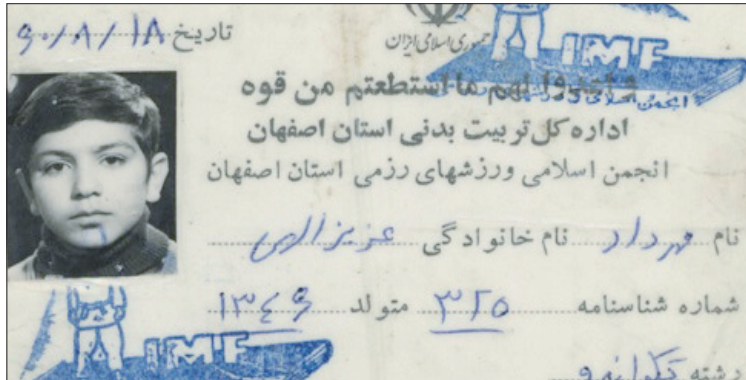 تاریخ ۶۰/۸/۱۸
جمهوری اسلامی ایران
IMF
و اعدوا لهم ما استطعتم من قوه
اداره کل تربیت بدنی استان اصفهان
انجمن اسلامی ورزشهای رزمی استان اصفهان
نام مهرداد نام خانوادگی عزیزالهی
شماره شناسنامه ۳۲۵ متولد ۱۳۴۶
IMF
رشته تکواندو